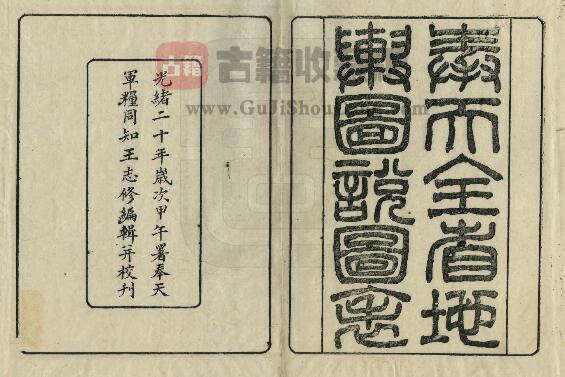 奉天全省地
輿圖說圖志
光緒二十年歲次甲午署奉天
軍糧同知王志修編輯并校刊
古籍
古籍收
www.GuJiShou
.com